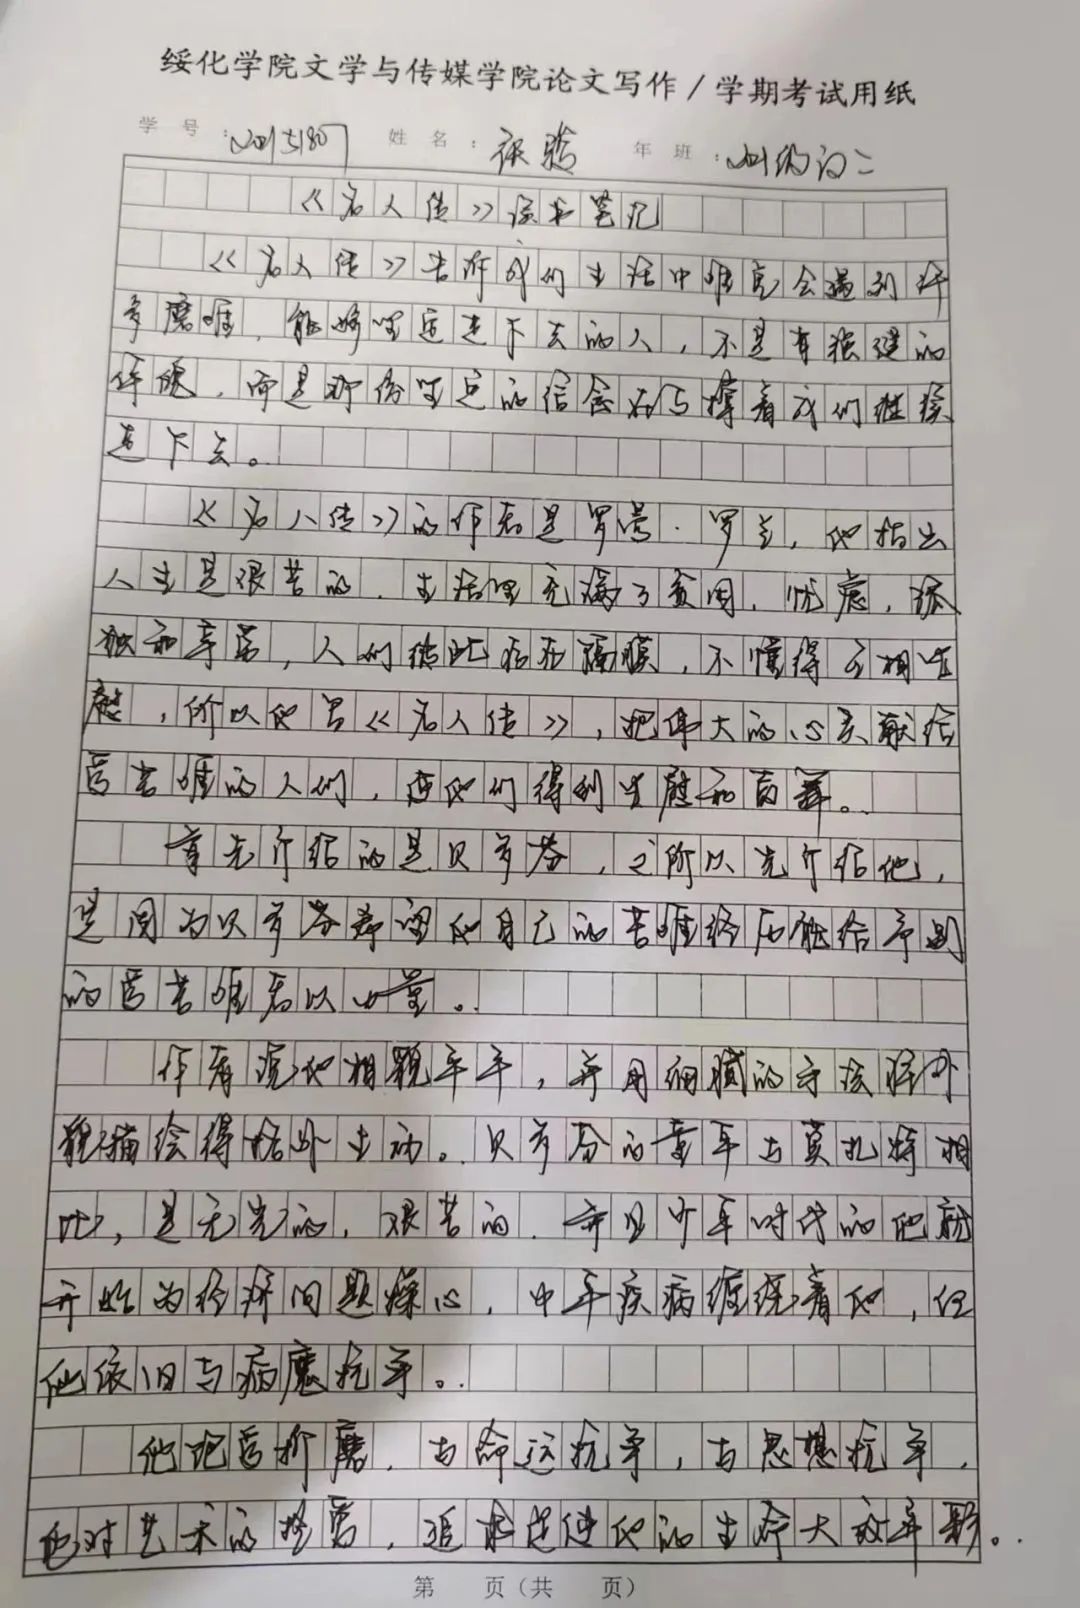 绥化学院文学与传媒学院论文写作/学期考试用纸
学号: 姓名: 年班:
《名人传》读书笔记
《名人传》告诉我们生活中难免会遇到许
多磨难,能够坚定走下去的人,不是有强健的
体魄,而是那份坚定的信念在支撑着我们继续
走下去。
《名人传》的作者是罗曼·罗兰,他指出
人生是艰苦的,生活里充满了贫困,忧虑,孤
独和辛苦,人们彼此存在隔膜,不懂得互相安
慰,所以他写《名人传》,把伟大的心灵献给
受苦难的人们,使他们得到安慰和鼓舞。
首先介绍的是贝多芬,之所以先介绍他,
是因为贝多芬希望他自己的苦难经历能给予别
的受苦难者以力量。
作者说他相貌平平,并用细腻的手法将外
貌描绘得格外生动。贝多芬的童年与莫扎特相
比,是无光的,艰苦的,并且少年时代的他就
开始为经济问题操心,中年疾病缠绕着他,但
他依旧与病魔抗争。
他饱受折磨,与命运抗争,与思想抗争,
他对艺术的挚爱,追求促使他的生命大放异彩。
第 页(共 页)